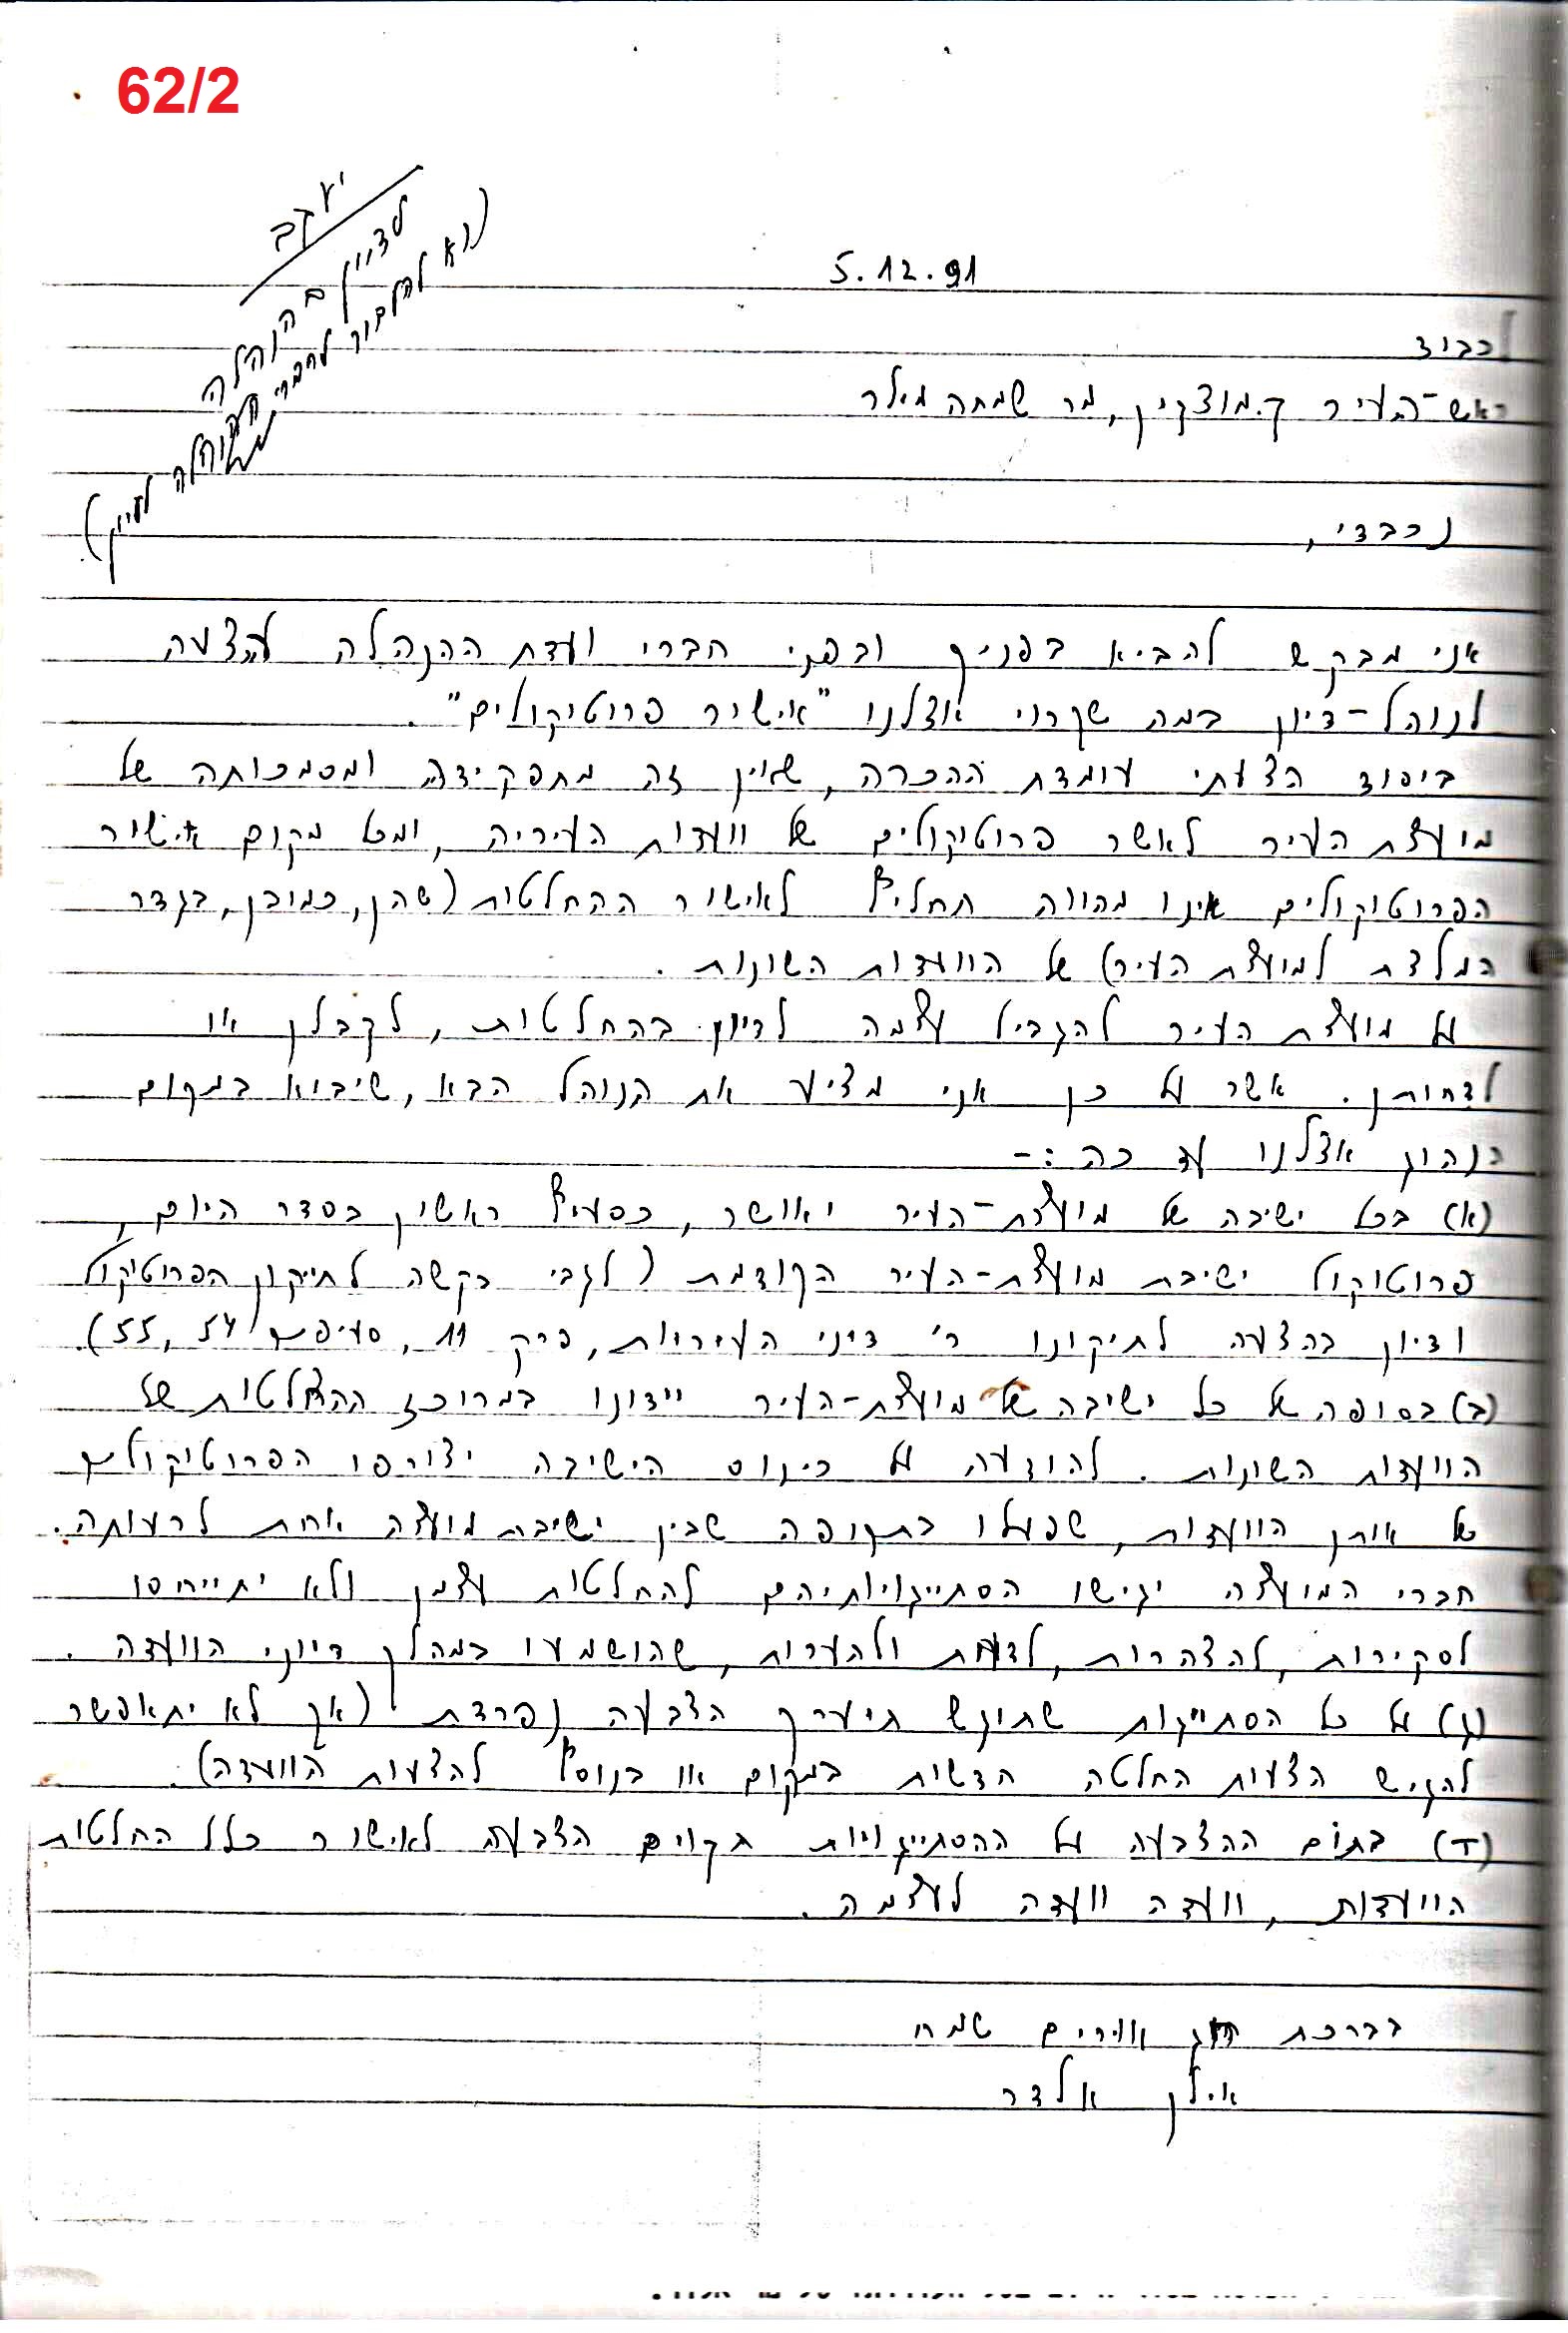 62/2
יעקב
לדיון בהנהלה
(נא להעביר לחברי ההנהלה לעיון)
5.12.91
לכבוד
ראש-העיר ק.מוצקין, מר שמחה מילר
נכבדי,
אני מבקש להביא בפניך ובפני חברי ועדת ההנהלה הצעה
לנוהל-דיון במה שקרוי אצלנו "אישור פרוטוקולים".
ביסוד הצעתי עומדת ההכרה, שאין זה מתפקידה ומסמכותה של
מועצת העיר לאשר פרוטוקולים של וועדות העיריה, ומכל מקום אישור
הפרוטוקולים אינו מהווה תחליף לאישור ההחלטות (שהן, כמובן, בגדר
המלצת למועצת העיר) של הוועדות השונות.
על מועצת העיר להגביל עצמה לדיון בהחלטות, לקבלן או
לדחותן. אשר על כן אני מציע את הנוהל הבא, שיבוא במקום
הנהוג אצלנו עד כה :-
(א) בכל ישיבה של מועצת-העיר יאושר, כסעיף ראשון בסדר היום,
פרוטוקול ישיבת מועצת-העיר הקודמת (לגבי בקשה לתיקון הפרוטוקול
ודיון בהצעה לתיקונו ר' דיני העיריות, פרק 11, סעיפים 54, 55).
(ב) בסופה של כל ישיבה של מועצת-העיר יידונו במרוכז ההחלטות של
הוועדות השונות. להודעה על כינוס הישיבה יצורפו הפרוטוקולים
של אותן הוועדות, שפעלו בתקופה שבין ישיבת מועצה אחת לרעותה.
חברי המועצה יגישו הסתייגויותיהם להחלטות עצמן ולא יתייחסו
לסקירות, להצהרות, לדעות ולהערות, שהושמעו במהלך דיוני הוועדה.
(ג) על כל הסתייגות שתוגש תיערך הצבעה נפרדת (אך לא יתאפשר
להגיש הצעות החלטה חדשות במקום או בנוסף להצעות הוועדה).
(ד) בתום ההצבעה על ההסתייגויות תקוים הצבעה לאישור כלל החלטות
הוועדות, וועדה וועדה לעצמה.
בברכת חג אורים שמח
אילן אלדר